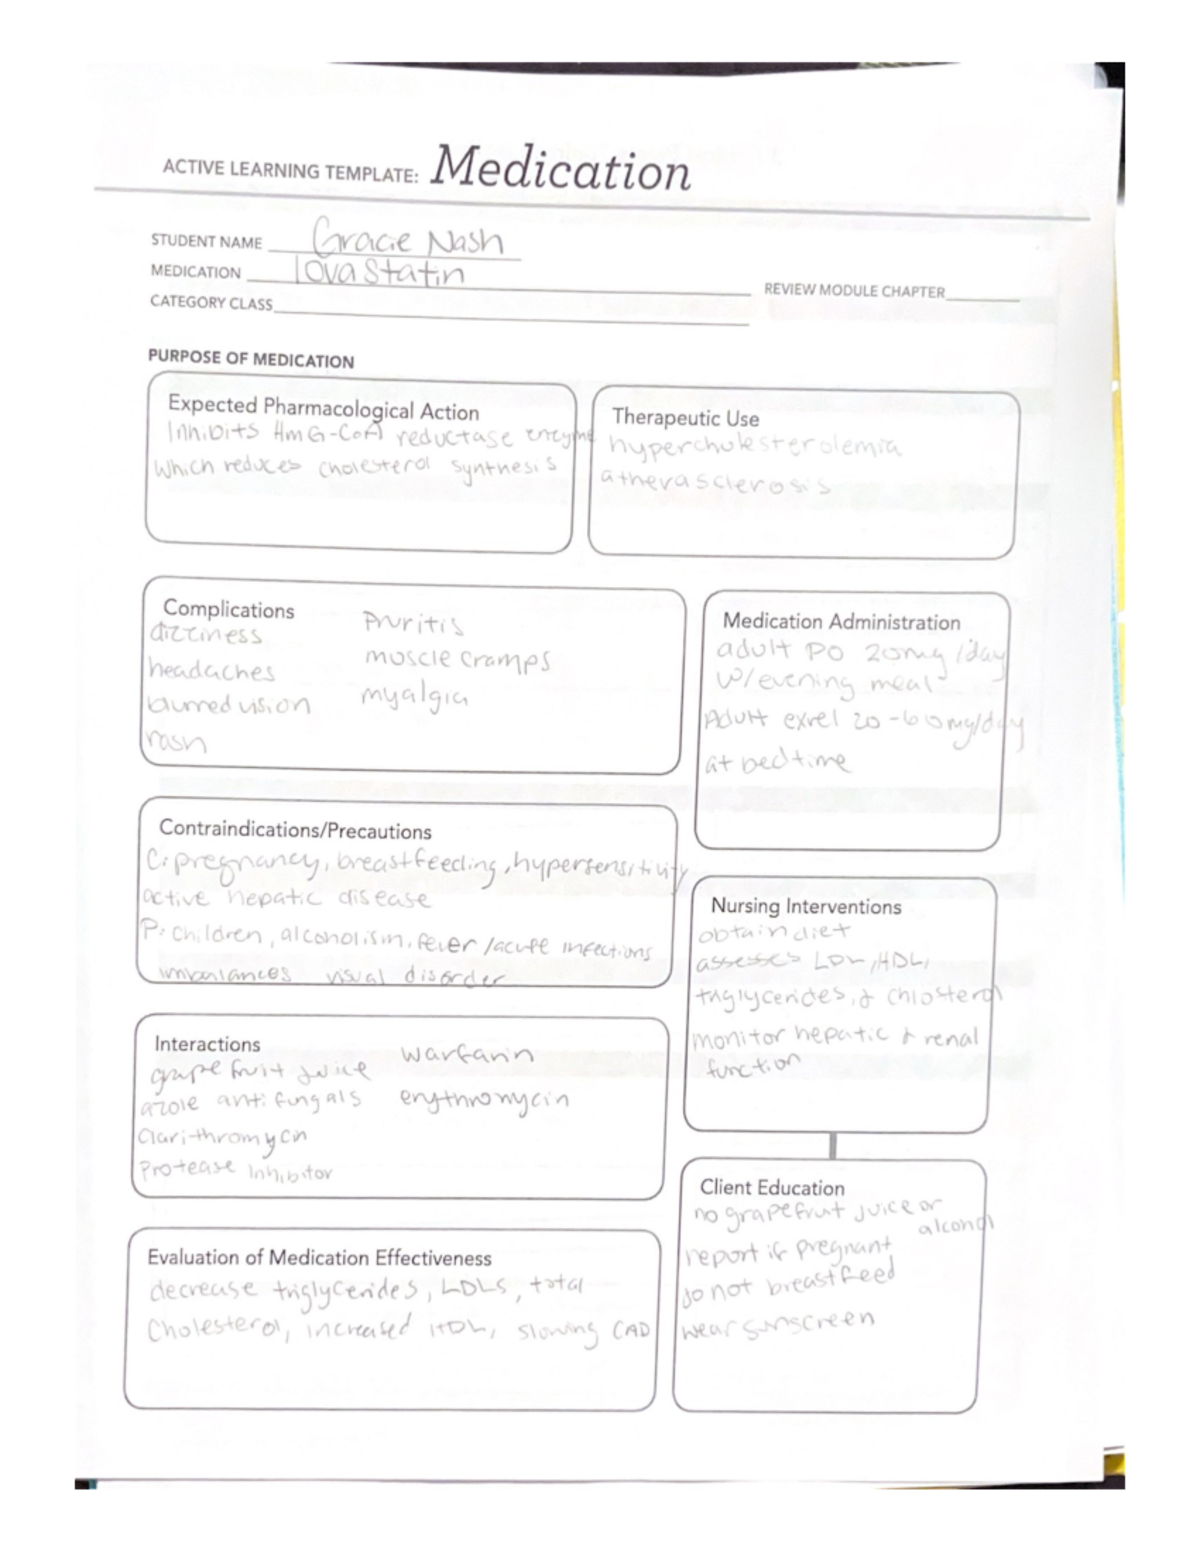 ACTIVE LEARNING TEMPLATE: Medication
STUDENT NAME Gracie Nash
MEDICATION lovastatin
REVIEW MODULE CHAPTER
CATEGORY CLASS
PURPOSE OF MEDICATION
Expected Pharmacological Action
Inhibits HmG-CoA reductase enzyme
which reduces cholesterol synthesis
Therapeutic Use
hypercholesterolemia
atherasclerosis
Complications
dizziness
headaches
blurred vision
rash
Pruritis
muscle cramps
myalgia
Medication Administration
adult PO 20mg/day
w/evening meal
Adult exrel 20-60mg/day
at bedtime
Contraindications/Precautions
C: pregnancy, breastfeeding, hypersensitivity
active hepatic disease
P: children, alcoholism, fever/acute infections
imbalances visual disorder
Nursing Interventions
obtain diet
assesses LDL, HDL,
triglycerides, & chlosterol
monitor hepatic & renal
function
Interactions
grapefruit juice
azole antifungals
Clarithromycin
Protease inhibitor
warfarin
erythromycin
Client Education
no grapefruit juice or
alcohol
report if pregnant
do not breastfeed
wear sunscreen
Evaluation of Medication Effectiveness
decrease triglycerides, LDLS, total
Cholesterol, increased HDL, slowing CAD